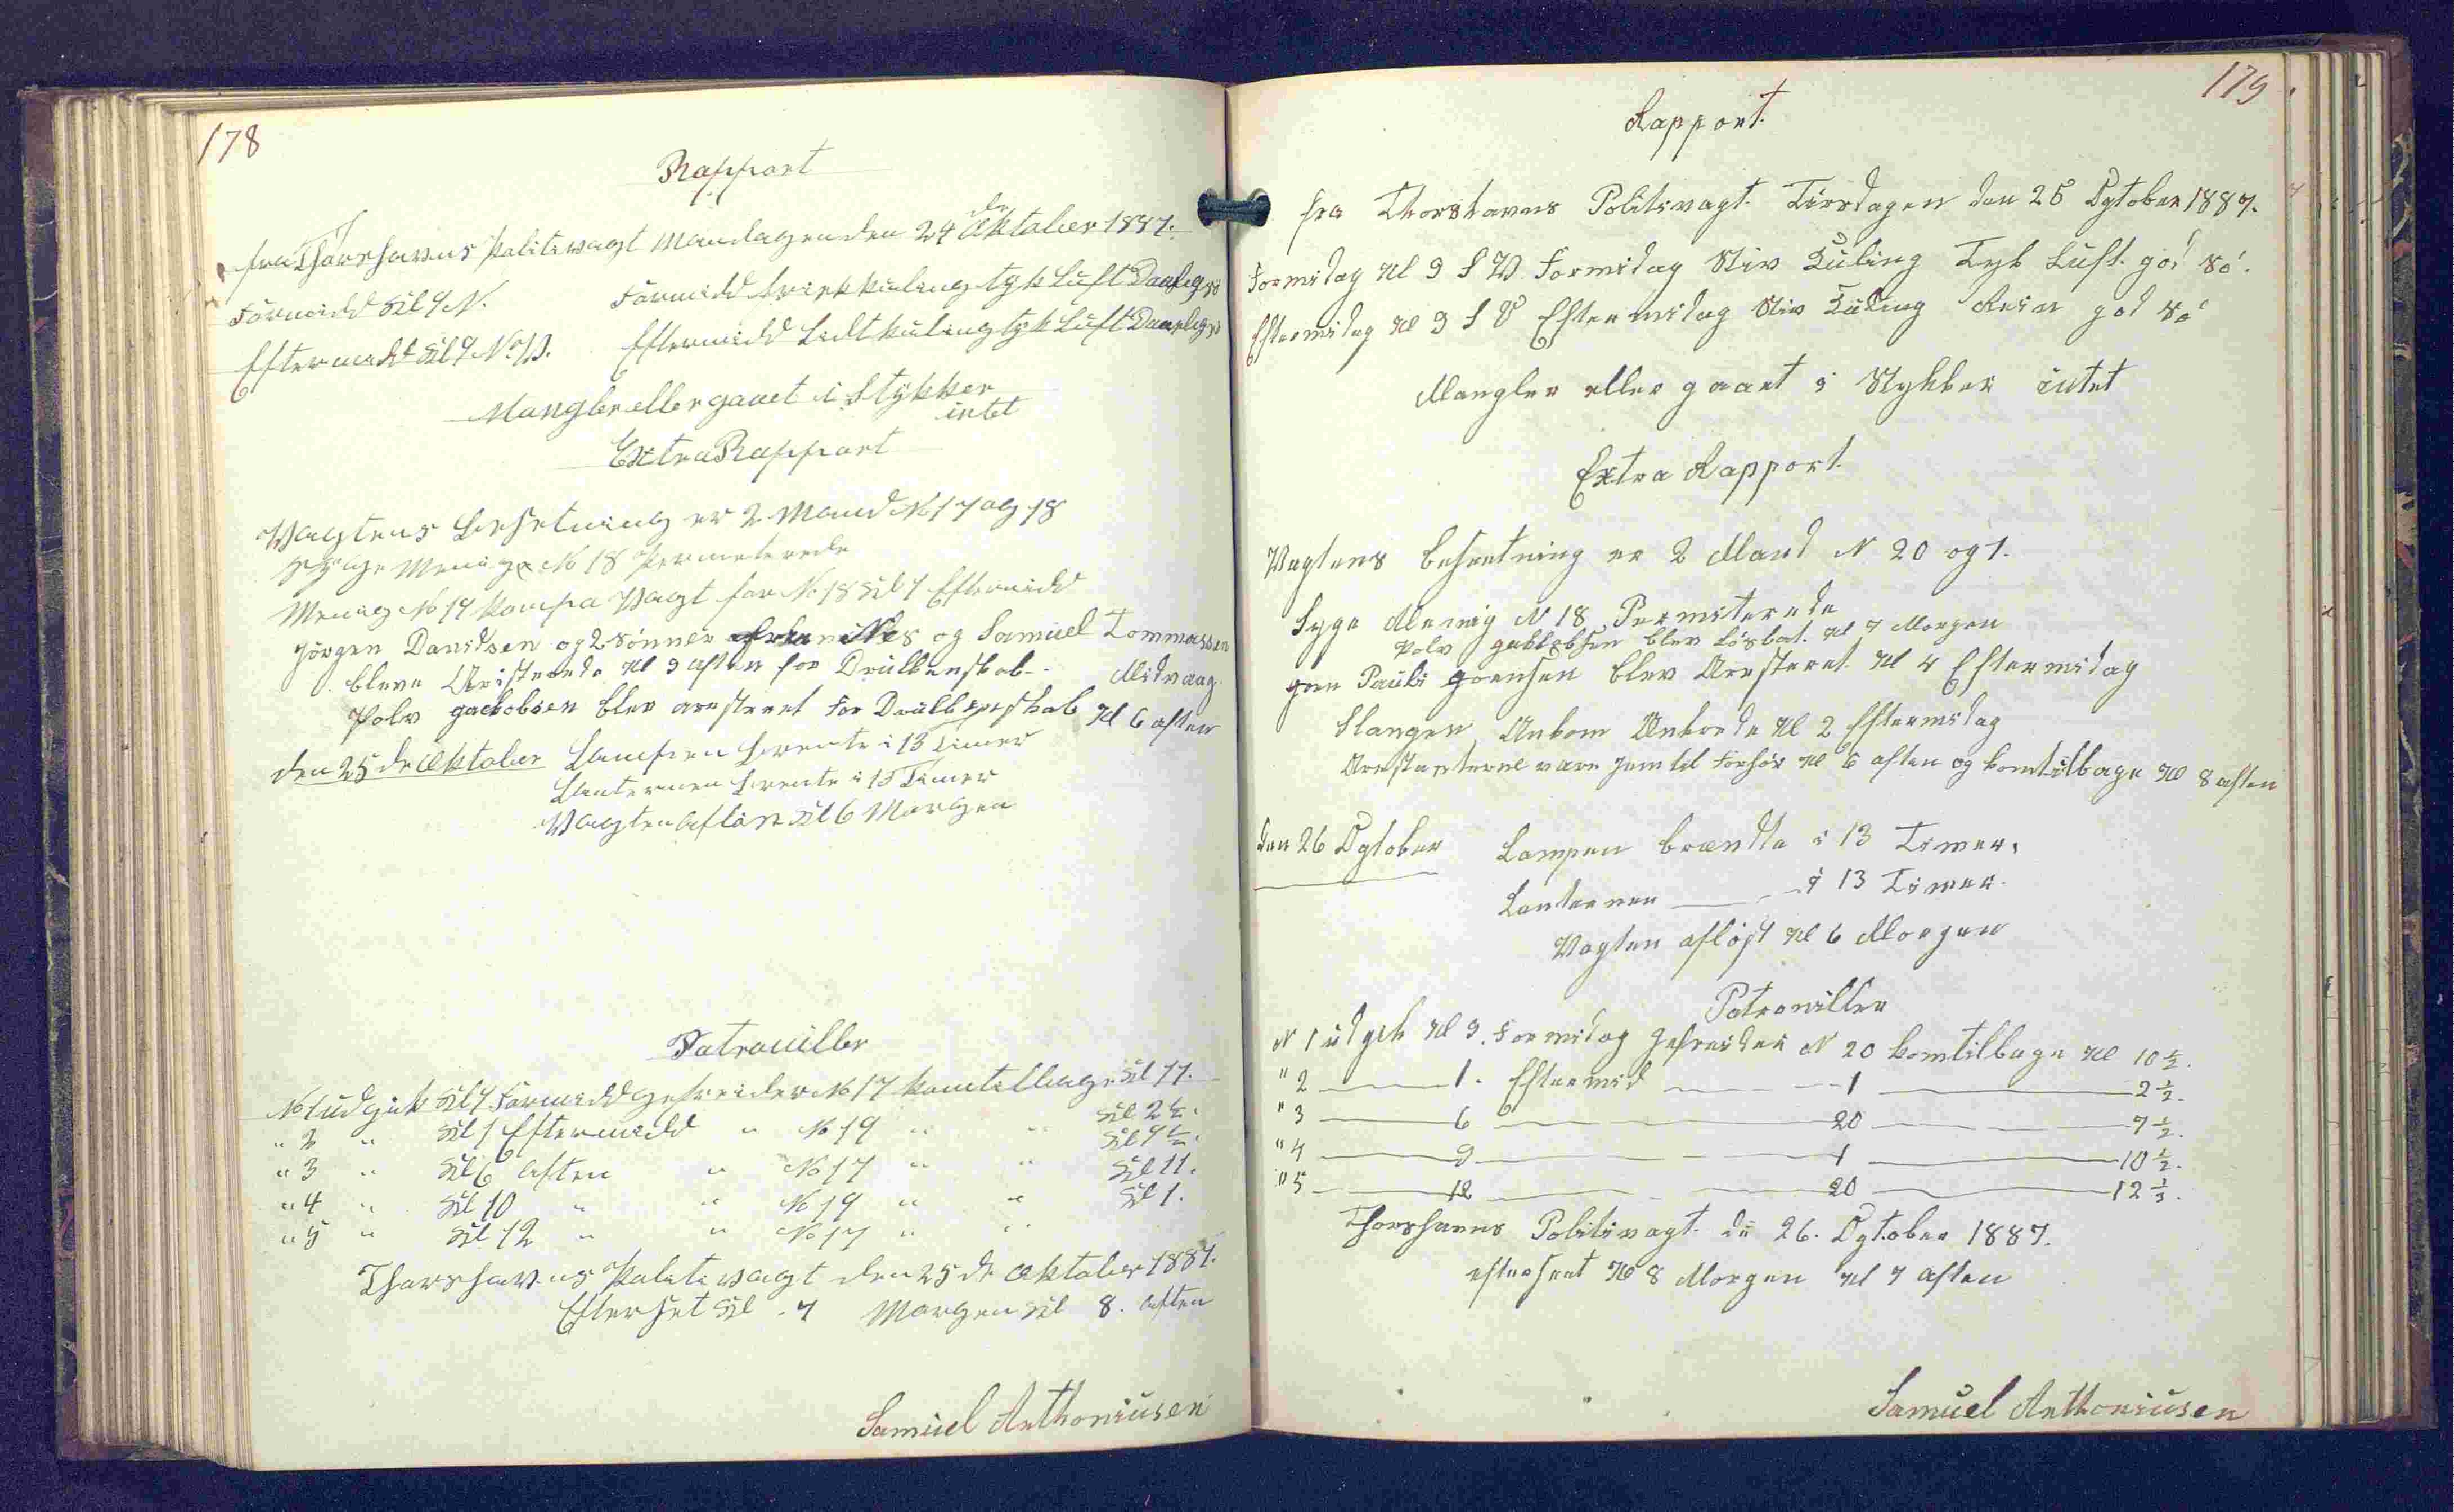 178
Rapport
fra Thorshavns Politivagt Mandagen den 24 de Oktober 1887.
Formidd Kl 9 N. Formidd frisk kuling tyk Luft Daarlig sö
Eftermidd Kl 9 N.V. Eftermidd Lidt kuling tyk Luft Daarlig sö
Mangler eller gaaet i Stykker
intet
Extra Rapport
Vagtens Besetning er 2 Mand No 17 og 18
Syge Menig No 18 Permeterede
Menig No 19 Vagt for No 18 Kl 1 Eftermidd
Jörgen Davidsen og 2 Sönner og Samuel Tommassen
bleve Aristerede Kl 9 aften for Drukkenskab Midvaag
Polv Jackobsen blev arresteret for Drukkenskab Kl 6 aften
den 25 de Oktober Lampen brente i 13 Timer
Lanternen brente i 13 Timer
Vagten aflöst Kl 6 Morgen
Patrouiller
No 1 udgik Kl 9 Formidd gefreider No 17 kom tilbage Kl 11.
" 2 " Kl 1 Eftermidd " No 19 " " Kl 2 ½.
" 3 " Kl 6 Aften " No 17 " " Kl 7 ½.
" 4 " Kl 10 " " No 19 " " Kl 11.
" 5 " Kl 12 " " No 17 " " Kl 1.
Thorshavns Politivagt den 25 de Oktober 1887.
Efterset Kl 7 Morgen Kl 8. Aften
Samuel Anthoniusen
179
Rapport.
fra Thorshavns Politivagt. Tirsdagen den 25 Ogtober 1887.
Formidag Kl 9 S V. Formidag Stiv Kuling Tyk Luft. god Sö.
Eftermidag Kl 9 S V Eftermidag Stiv Kuling Rein god Sö
Mangler eller gaaet i Stykker intet
Extra Rapport.
Vagtens Besætning er 2 Mand N 20 og 1.
Syge Menig N 18 Permiterede
Polv Jakkobsen blev Löslat. Kl 7 Morgen
Joen Pauli Joensen blev Arresteret. Kl 4 Eftermidag
Slangen Ankom Ankrede Kl 2 Eftermidag
Arrestanterne vare hen til Forhör Kl 6 aften og kom tilbage Kl 8 aften
den 26 Ogtober Lampen brændte i 13 Timer.
Lanternen — i 13 Timer.
Vagten aflöst Kl 6 Morgen
Patrouiller
N 1 udgik Kl 9. Formidag Gefreider N 20 kom tilbage Kl 10 ½.
" 2 — 1. Eftermid — 1 — 2 ½.
" 3 — 6 — 20 — 7 ½.
" 4 — 9 — 1 — 10 ½.
" 5 — 12 — 20 — 12 ½.
Thorshavns Politivagt. d: 26. Ogtober 1887.
efterseet Kl 8 Morgen Kl 7 aften
Samuel Anthoniusen